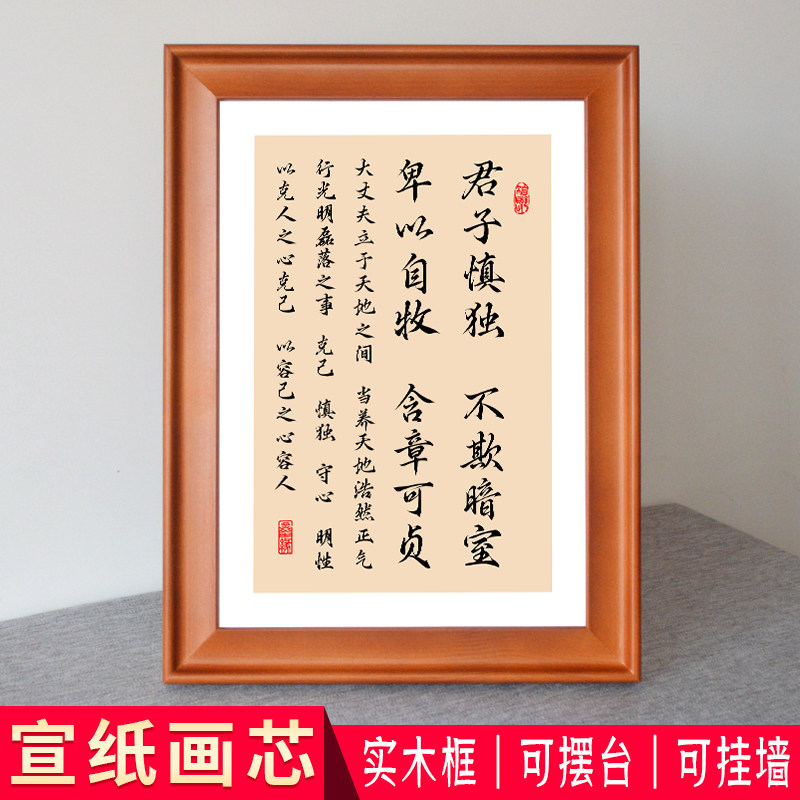 君子慎独 不欺暗室
卑以自牧 含章可贞
大丈夫立于天地之间 当养天地浩然正气
行光明磊落之事 克己 慎独 守心 明性
以克人之心克己 以容己之心容人
宣纸画芯
实木框|可摆台|可挂墙